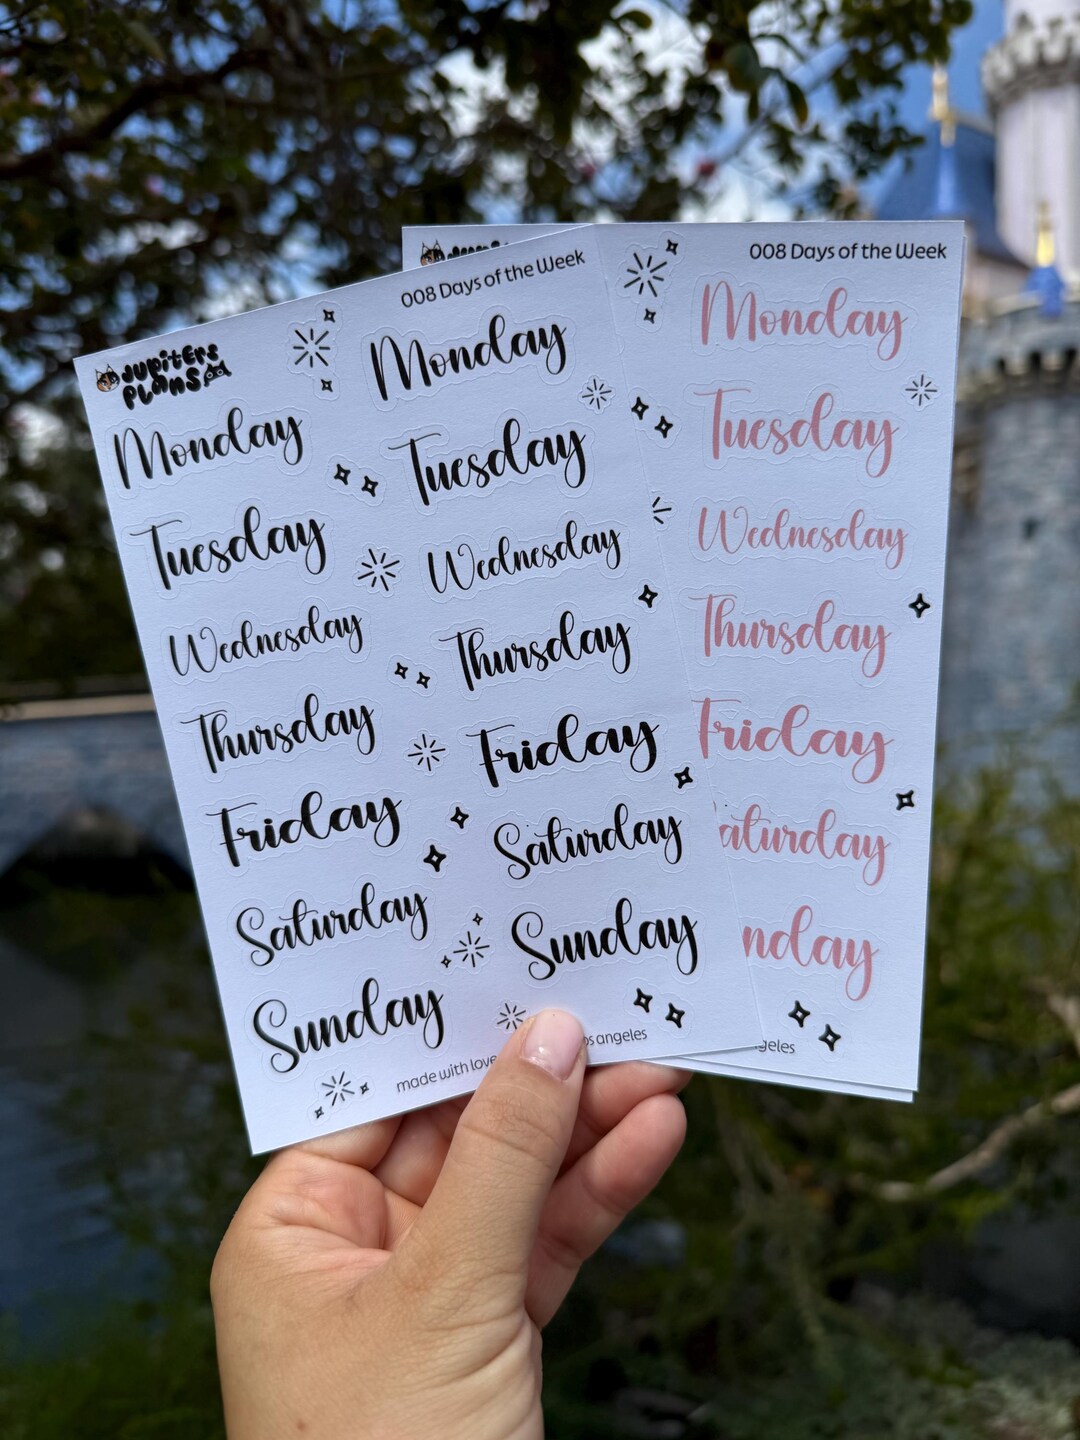 008 Days of the Week
jupiters
plans
Monday
Tuesday
Wednesday
Thursday
Friday
Saturday
Sunday
Monday
Tuesday
Wednesday
Thursday
Friday
Saturday
Sunday
made with love
os angeles
008 Days of the Week
Monday
Tuesday
Wednesday
Thursday
Friday
aturday
nday
geles